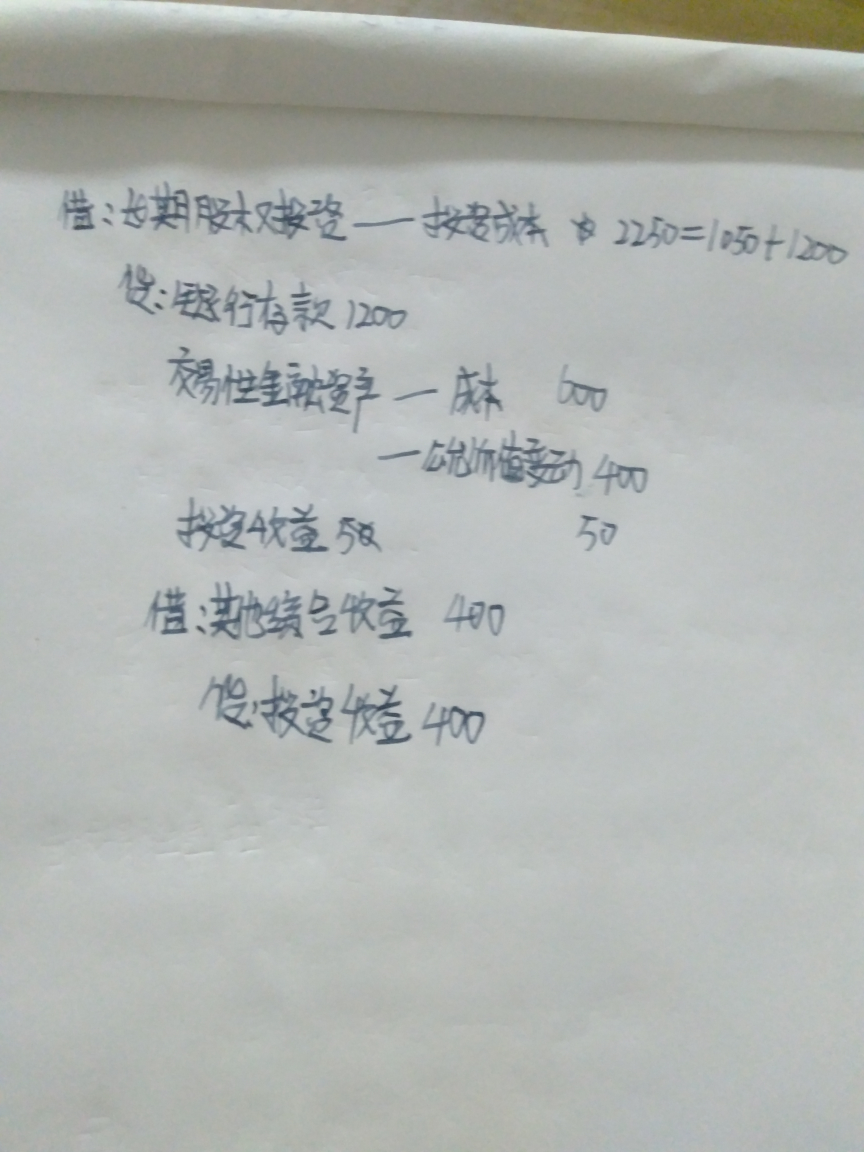 借：长期股权投资——投资成本 2250=1050+1200
贷：银行存款 1200
交易性金融资产—成本 600
—公允价值变动 400
投资收益 50 50
借：其他综合收益 400
贷：投资收益 400